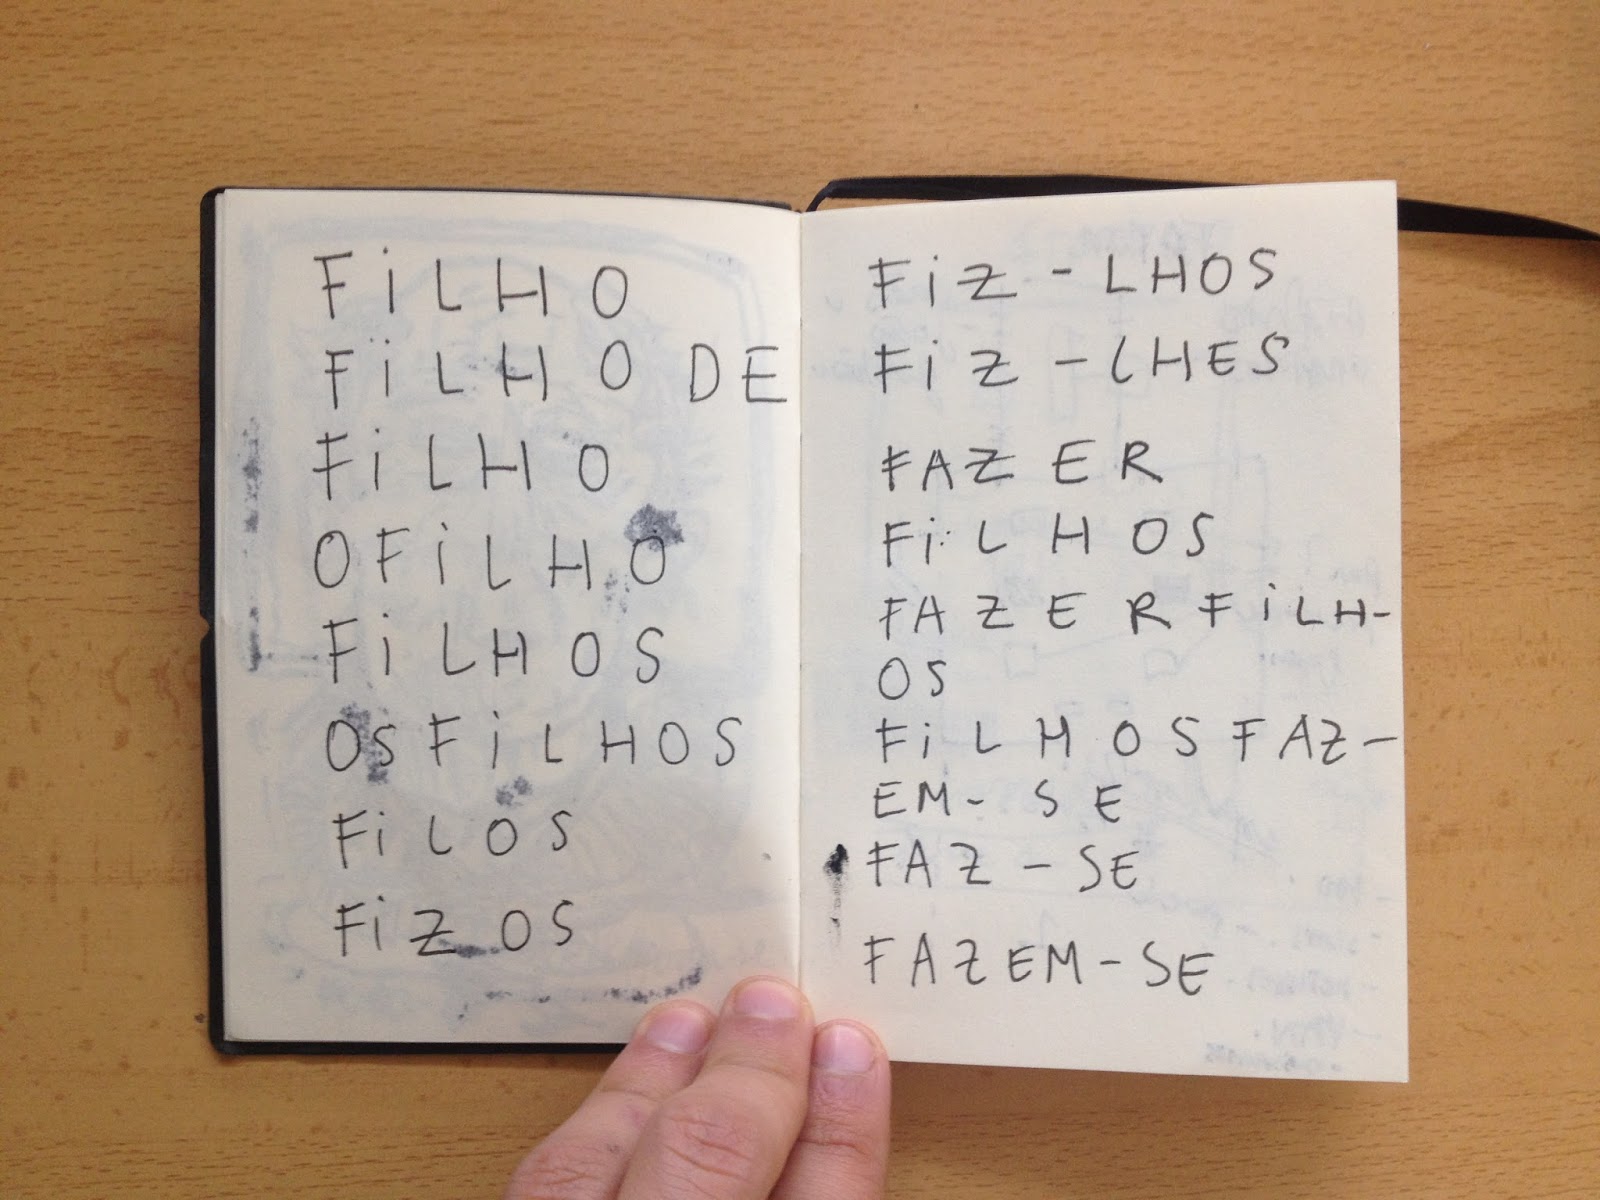 FiLHO
FiLHO DE
FiLHO
O FiLHO
FiLHOS
OS FiLHOS
FiLOS
FiZ OS
FiZ-LHOS
FiZ-LHES
FAZER
FiLHOS
FAZER FiLH-
OS
FiLHOS FAZ-
EM-SE
FAZ-SE
FAZEM-SE